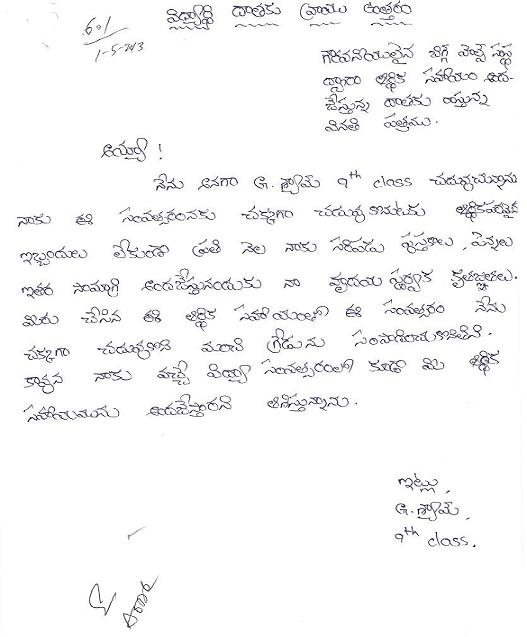 విద్యార్థి దాతకు వ్రాయు ఉత్తరం
601
1-5-243
గౌరవనీయులైన బిగ్ హెల్ప్ సంస్థ
ద్వారా ఆర్థిక సహాయం అంద-
చేస్తున్న దాతకు ఇస్తున్న
వినతి పత్రము.
అయ్యా !
నేను అనగా G. శ్యామ్ 9th class చదువుచున్నాను
నాకు ఈ సంవత్సరంనకు చక్కగా చదువుకొనుటకు ఆర్థికపరమైన
ఇబ్బందులు లేకుండా ప్రతి నెల నాకు సరిపడు పుస్తకాలు, పెన్నులు
ఇతర సామాగ్రి అందచేస్తునందుకు నా హృదయ పూర్వక కృతజ్ఞతలు.
మీరు చేసిన ఈ ఆర్థిక సహాయంతో ఈ సంవత్సరం నేను
చక్కగా చదువుకొని మంచి గ్రేడును సంపాదించుకొంటిని.
కావున నాకు వచ్చే విద్యా సంవత్సరంలో కూడా మీ ఆర్థిక
సహాయమును అందచేస్తారని ఆశిస్తున్నాను.
ఇట్లు,
G. శ్యామ్,
9th class.